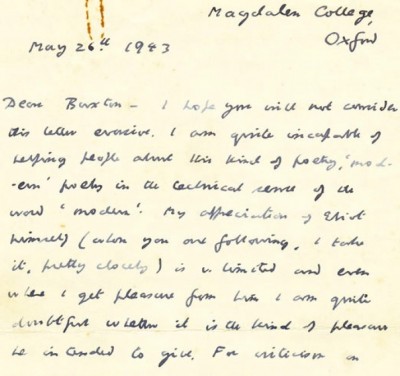 Magdalen College,
Oxford
May 26th 1943
Dear Buxton – I hope you will not consider
this letter evasive. I am quite incapable of
helping people about this kind of poetry, 'mod-
-ern' poetry in the technical sense of the
word 'modern'. My appreciation of Eliot
himself (whom you are following, I take
it, pretty closely) is v. limited and even
where I get pleasure from him I am quite
doubtful whether it is the kind of pleasure
he intended to give. For criticism on